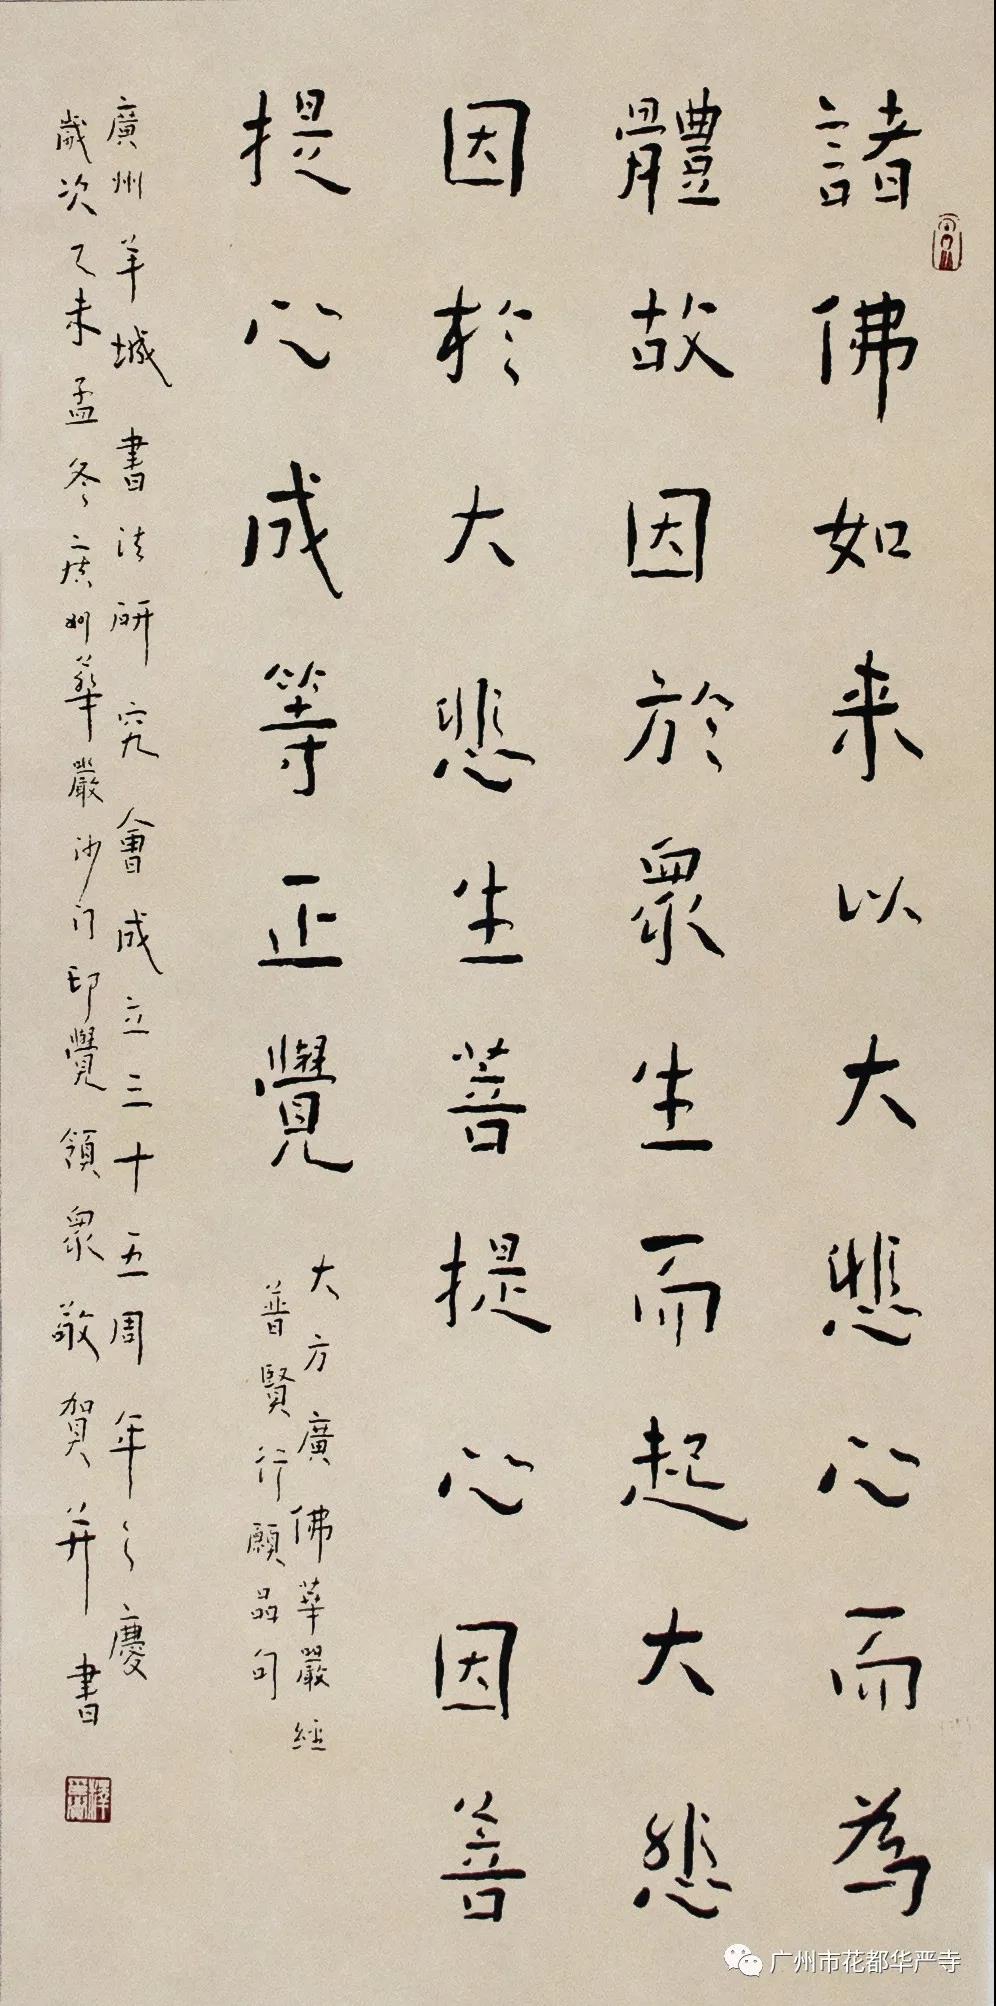 諸佛如来以大悲心而為
體故因於衆生而起大悲
因於大悲生菩提心因菩
提心成等正覺
大方廣佛華嚴經
普賢行願品句
廣州羊城書法研究會成立三十五周年之慶
歲次乙未孟冬廣州華嚴沙门印覺領衆敬賀并書
广州市花都华严寺